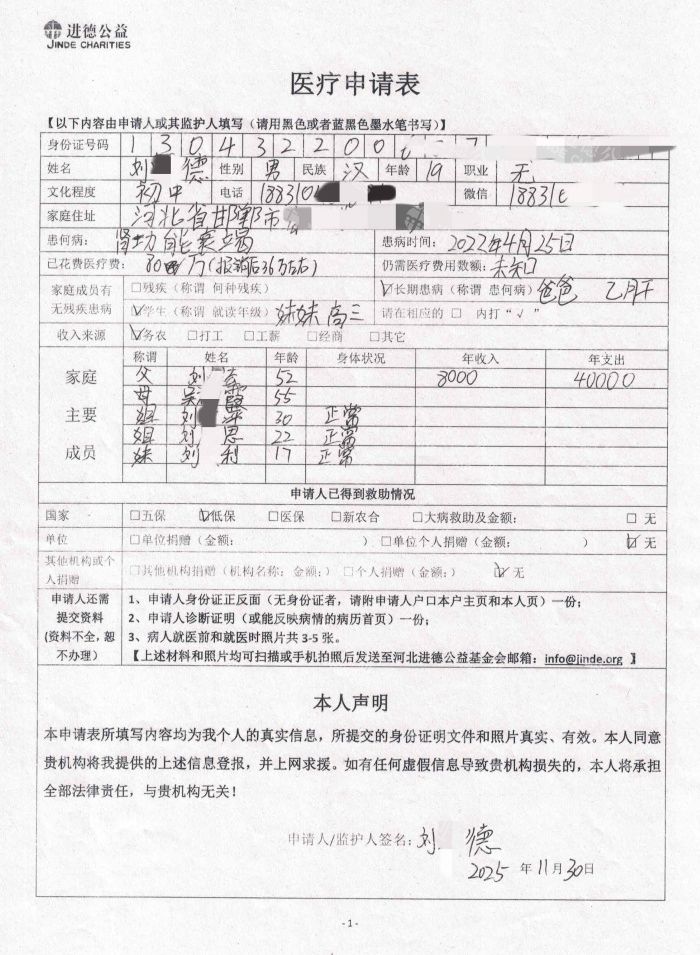 进德公益
JINDE CHARITIES
医疗申请表
【以下内容由申请人或其监护人填写（请用黑色或者蓝黑色墨水笔书写）】
身份证号码 1 3 0 4 3 2 2 0 0
姓名 刘 德 性别 男 民族 汉 年龄 19 职业 无
文化程度 初中 电话 188310 微信 18831
家庭住址 河北省邯郸市
患何病： 肾功能衰竭 患病时间：2022年4月25日
已花费医疗费： 80万(报销后36万左右) 仍需医疗费用数额：未知
家庭成员有无残疾患病 □残疾（称谓 何种残疾） ☑长期患病（称谓 患何病）爸爸 乙肝
☑学生（称谓 就读年级）妹妹 高三 请在相应的 □ 内打“√”
收入来源 ☑务农 □打工 □工薪 □经商 □其它
家庭主要成员 称谓 姓名 年龄 身体状况 年收入 年支出
父 刘 52 8000 40000
母 55
姐 刘 30 正常
姐 刘 思 22 正常
妹 刘 利 17 正常
申请人已得到救助情况
国家 □五保 ☑低保 □医保 □新农合 □大病救助及金额： □ 无
单位 □单位捐赠（金额： ） □单位个人捐赠（金额： ） ☑ 无
其他机构或个人捐赠 □其他机构捐赠（机构名称：金额：） □个人捐赠（金额：） ☑ 无
申请人还需提交资料(资料不全，恕不办理) 1、申请人身份证正反面（无身份证者，请附申请人户口本户主页和本人页）一份；
2、申请人诊断证明（或能反映病情的病历首页）一份；
3、病人就医前和就医时照片共 3-5 张。
【上述材料和照片均可扫描或手机拍照后发送至河北进德公益基金会邮箱：info@jinde.org 】
本人声明
本申请表所填写内容均为我个人的真实信息，所提交的身份证明文件和照片真实、有效。本人同意
贵机构将我提供的上述信息登报，并上网求援。如有任何虚假信息导致贵机构损失的，本人将承担
全部法律责任，与贵机构无关！
申请人/监护人签名：刘 德
2025 年 11月30日
- 1 -